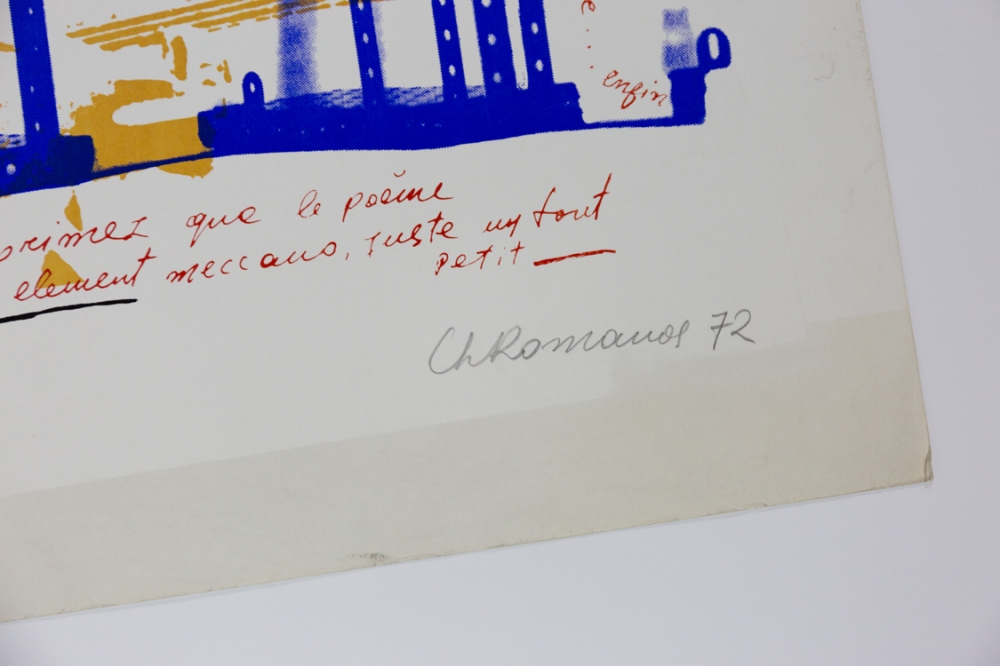 e...
enfin
primez que le poème
element meccano, juste un tout
petit
Ch Romanos 72